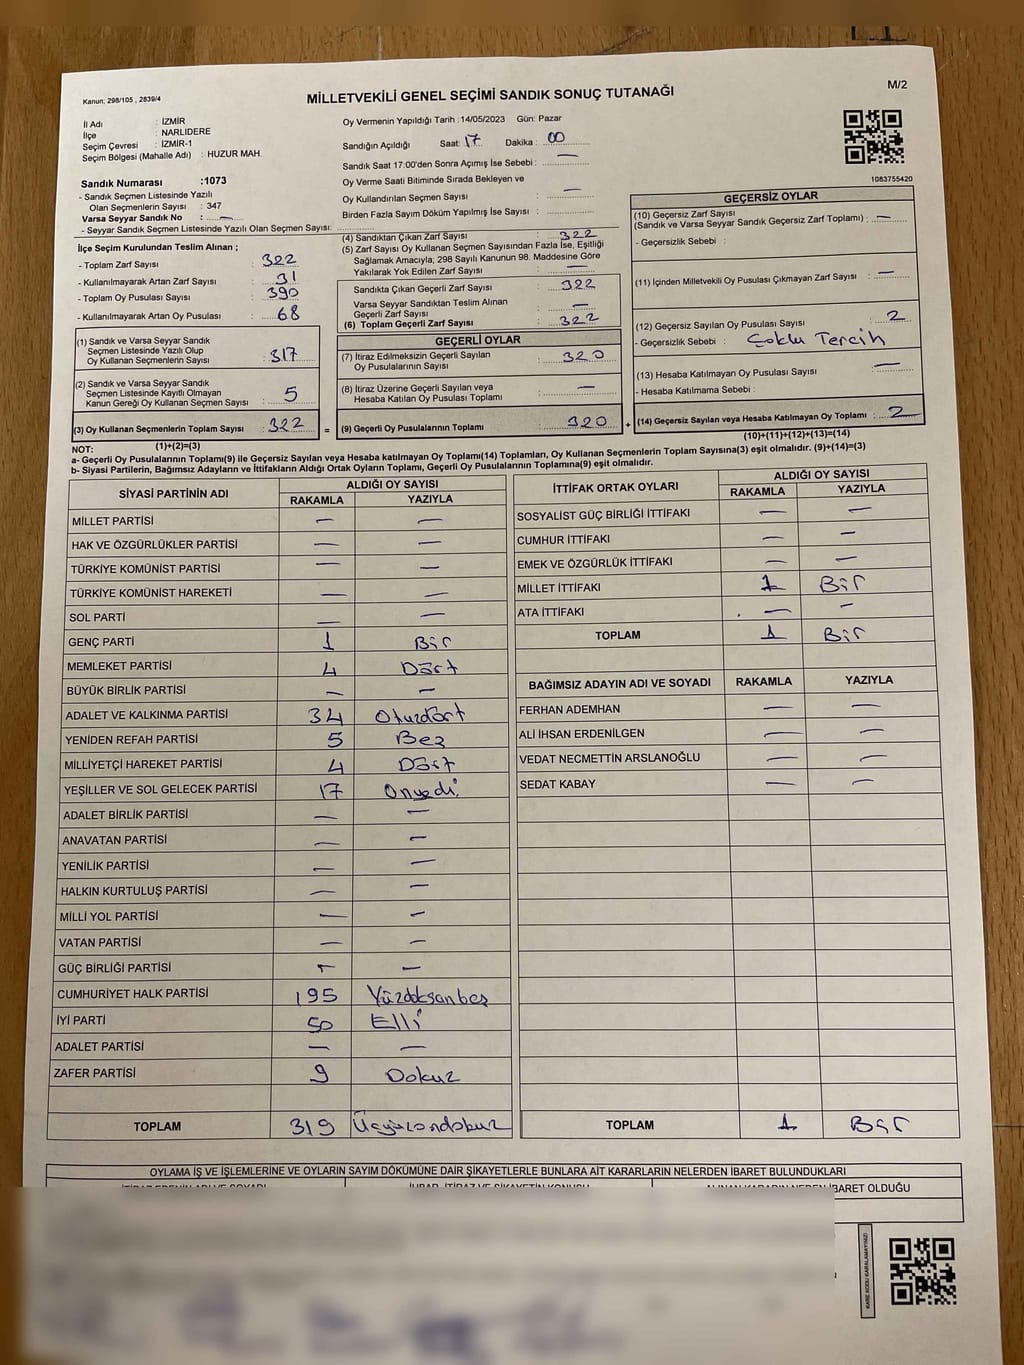 Kanun: 298/105 , 2839/4
MİLLETVEKİLİ GENEL SEÇİMİ SANDIK SONUÇ TUTANAĞI
M/2
İl Adı : İZMİR
İlçe : NARLIDERE
Seçim Çevresi : İZMİR-1
Seçim Bölgesi (Mahalle Adı) : HUZUR MAH.
Sandık Numarası :1073
- Sandık Seçmen Listesinde Yazılı
Olan Seçmenlerin Sayısı : 347
Varsa Seyyar Sandık No : —
- Seyyar Sandık Seçmen Listesinde Yazılı Olan Seçmen Sayısı:
Oy Vermenin Yapıldığı Tarih :14/05/2023 Gün: Pazar
Sandığın Açıldığı Saat: 17 Dakika : 00
Sandık Saat 17:00'den Sonra Açımış İse Sebebi : —
Oy Verme Saati Bitiminde Sırada Bekleyen ve
Oy Kullandırılan Seçmen Sayısı : —
Birden Fazla Sayım Döküm Yapılmış İse Sayısı :
1083755420
İlçe Seçim Kurulundan Teslim Alınan ;
- Toplam Zarf Sayısı : 322
- Kullanılmayarak Artan Zarf Sayısı : 31
- Toplam Oy Pusulası Sayısı : 390
- Kullanılmayarak Artan Oy Pusulası : 68
(1) Sandık ve Varsa Seyyar Sandık
Seçmen Listesinde Yazılı Olup
Oy Kullanan Seçmenlerin Sayısı : 317
(2) Sandık ve Varsa Seyyar Sandık
Seçmen Listesinde Kayıtlı Olmayan
Kanun Gereği Oy Kullanan Seçmen Sayısı : 5
(3) Oy Kullanan Seçmenlerin Toplam Sayısı : 322
(1)+(2)=(3)
(4) Sandıktan Çıkan Zarf Sayısı : 322
(5) Zarf Sayısı Oy Kullanan Seçmen Sayısından Fazla İse, Eşitliği
Sağlamak Amacıyla; 298 Sayılı Kanunun 98. Maddesine Göre
Yakılarak Yok Edilen Zarf Sayısı : —
Sandıkta Çıkan Geçerli Zarf Sayısı : 322
Varsa Seyyar Sandıktan Teslim Alınan
Geçerli Zarf Sayısı : —
(6) Toplam Geçerli Zarf Sayısı : 322
GEÇERLİ OYLAR
(7) İtiraz Edilmeksizin Geçerli Sayılan
Oy Pusulalarının Sayısı : 320
(8) İtiraz Üzerine Geçerli Sayılan veya
Hesaba Katılan Oy Pusulası Toplamı : —
= (9) Geçerli Oy Pusulalarının Toplamı : 320 +
GEÇERSİZ OYLAR
(10) Geçersiz Zarf Sayısı
(Sandık ve Varsa Seyyar Sandık Geçersiz Zarf Toplamı) : —
- Geçersizlik Sebebi :
(11) İçinden Milletvekili Oy Pusulası Çıkmayan Zarf Sayısı : —
(12) Geçersiz Sayılan Oy Pusulası Sayısı : 2
- Geçersizlik Sebebi : Çoklu Tercih
(13) Hesaba Katılmayan Oy Pusulası Sayısı : —
- Hesaba Katılmama Sebebi :
(14) Geçersiz Sayılan veya Hesaba Katılmayan Oy Toplamı : 2
(10)+(11)+(12)+(13)=(14)
NOT:
a- Geçerli Oy Pusulalarının Toplamı(9) ile Geçersiz Sayılan veya Hesaba katılmayan Oy Toplamı(14) Toplamları, Oy Kullanan Seçmenlerin Toplam Sayısına(3) eşit olmalıdır. (9)+(14)=(3)
b- Siyasi Partilerin, Bağımsız Adayların ve İttifakların Aldığı Ortak Oyların Toplamı, Geçerli Oy Pusulalarının Toplamına(9) eşit olmalıdır.
SİYASİ PARTİNİN ADI ALDIĞI OY SAYISI
RAKAMLA YAZIYLA
MİLLET PARTİSİ — —
HAK VE ÖZGÜRLÜKLER PARTİSİ — —
TÜRKİYE KOMÜNİST PARTİSİ — —
TÜRKİYE KOMÜNİST HAREKETİ — —
SOL PARTİ — —
GENÇ PARTİ 1 Bir
MEMLEKET PARTİSİ 4 Dört
BÜYÜK BİRLİK PARTİSİ — —
ADALET VE KALKINMA PARTİSİ 34 Otuzdört
YENİDEN REFAH PARTİSİ 5 Beş
MİLLİYETÇİ HAREKET PARTİSİ 4 Dört
YEŞİLLER VE SOL GELECEK PARTİSİ 17 Onyedi
ADALET BİRLİK PARTİSİ — —
ANAVATAN PARTİSİ — —
YENİLİK PARTİSİ — —
HALKIN KURTULUŞ PARTİSİ — —
MİLLİ YOL PARTİSİ — —
VATAN PARTİSİ — —
GÜÇ BİRLİĞİ PARTİSİ — —
CUMHURİYET HALK PARTİSİ 195 Yüzdoksanbeş
İYİ PARTİ 50 Elli
ADALET PARTİSİ — —
ZAFER PARTİSİ 9 Dokuz
TOPLAM 319 Üçyüzondokuz
İTTİFAK ORTAK OYLARI ALDIĞI OY SAYISI
RAKAMLA YAZIYLA
SOSYALİST GÜÇ BİRLİĞİ İTTİFAKI — —
CUMHUR İTTİFAKI — —
EMEK VE ÖZGÜRLÜK İTTİFAKI — —
MİLLET İTTİFAKI 1 Bir
ATA İTTİFAKI — —
TOPLAM 1 Bir
BAĞIMSIZ ADAYIN ADI VE SOYADI RAKAMLA YAZIYLA
FERHAN ADEMHAN — —
ALİ İHSAN ERDENİLGEN — —
VEDAT NECMETTİN ARSLANOĞLU — —
SEDAT KABAY — —
TOPLAM 1 Bir
OYLAMA İŞ VE İŞLEMLERİNE VE OYLARIN SAYIM DÖKÜMÜNE DAİR ŞİKAYETLERLE BUNLARA AİT KARARLARIN NELERDEN İBARET BULUNDUKLARI
İBARET OLDUĞU